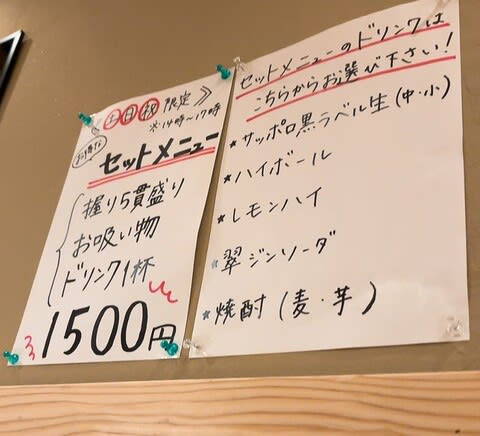 土 日 祝 限定》
※14時〜17時
お得な
セットメニュー
握り5貫盛り
お吸い物
ドリンク1杯
1500円
セットメニューのドリンクは
こちらからお選び下さい!
★サッポロ黒ラベル生(中・小)
★ハイボール
★レモンハイ
★翠ジンソーダ
★焼酎(麦・芋)